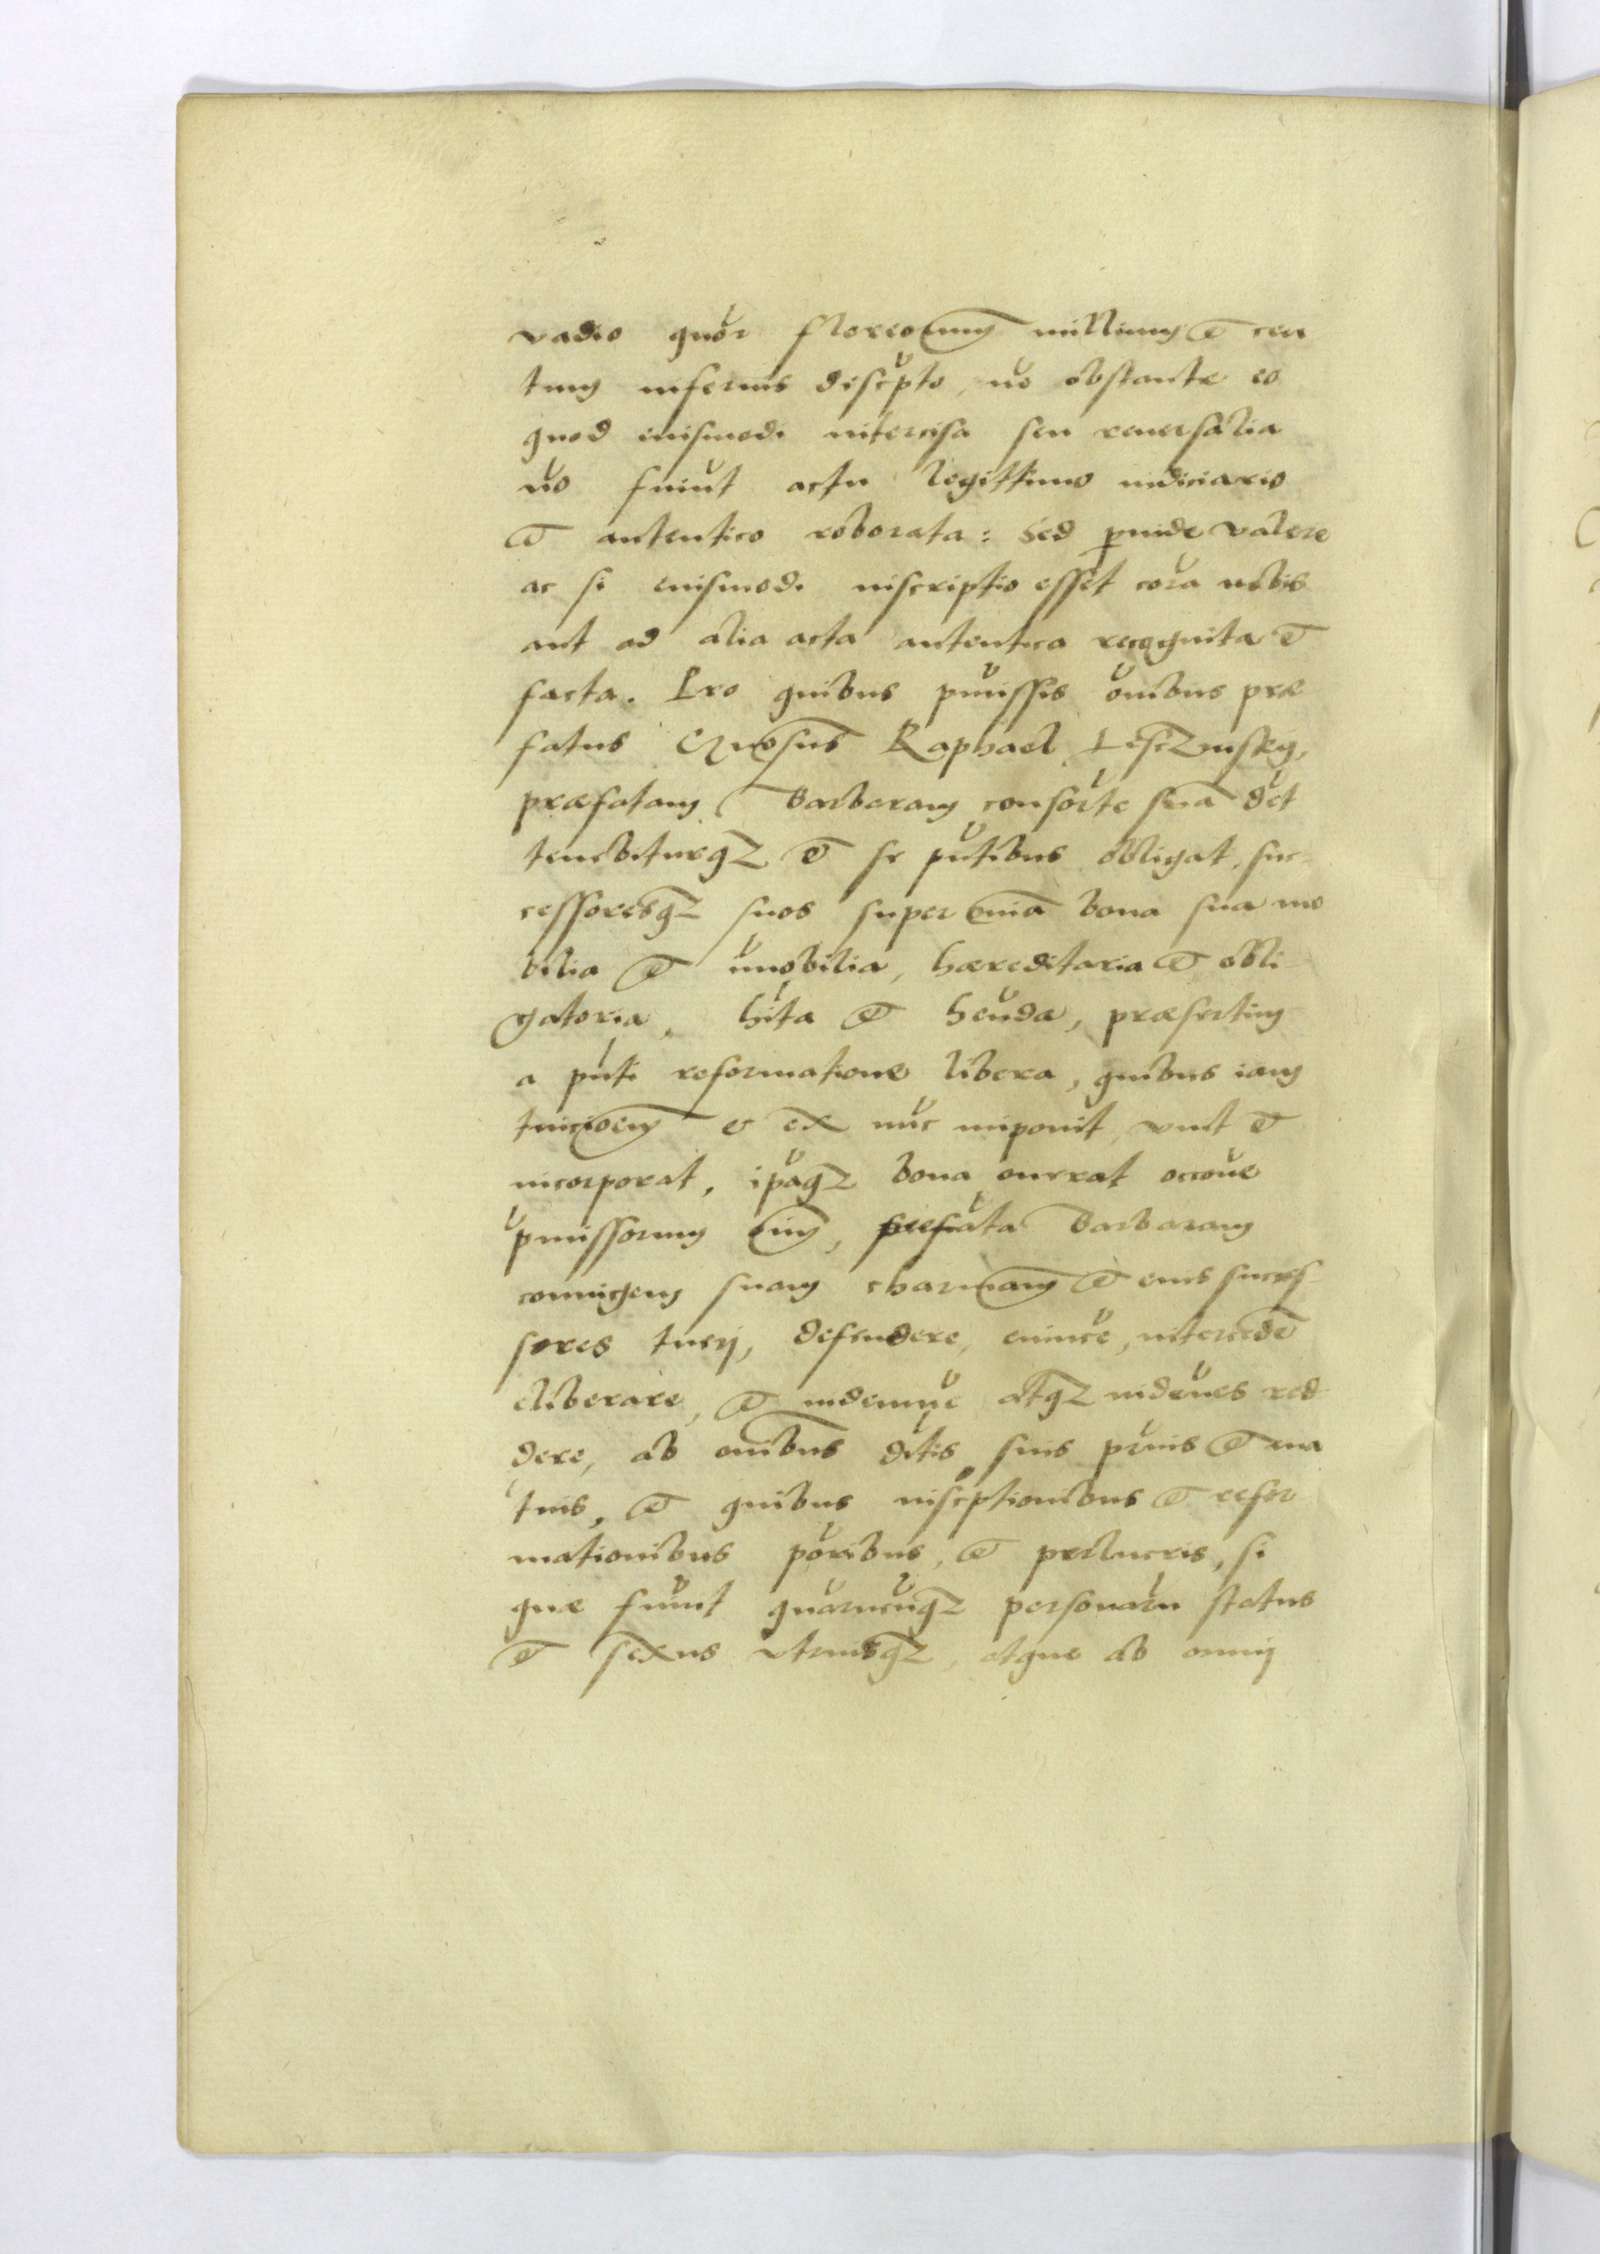 vadio quor florenorum millium et cen
tum inferius descpto, no obstante eo
quod eiusmodi intercisa seu reuersalia
no fuiut actu legittimo iudiciario
et autentico roborata: Sed perinde valere
ac si eiusmodi inscriptio esset cora nobis
aut ad alia acta autentica recognita et
facta. Pro quibus pmissis oibus præ
fatus Raphael Lesczinsky,
præfatam Barbaram consorte sua det
tenebiturqz et se pntibus obligat, suc
cessoresqz suos super omia bona sua mo
bilia et imobilia, hæreditaria et obli
gatoria, hita et henda, præsertim
a pnti reformatione libera, quibus iam
tuicioem et ex nuc imponit, vnit et
incorporat, ipaqz bona onerat occone
pmissorum oim, prefata Barbaram
coniugem suam charissimam et eius succes
sores tueri, defendere, euince, intercede
eliberare, et indemne atqz indenes red
dere, ab omibus ditis suis prnis et ma
tnis, et quibus inscptionibus et refor
mationibus poribus, et perlucris, si
quæ fuiut quarucuqz personaru status
et sexus vtriusqz, atque ab omnj